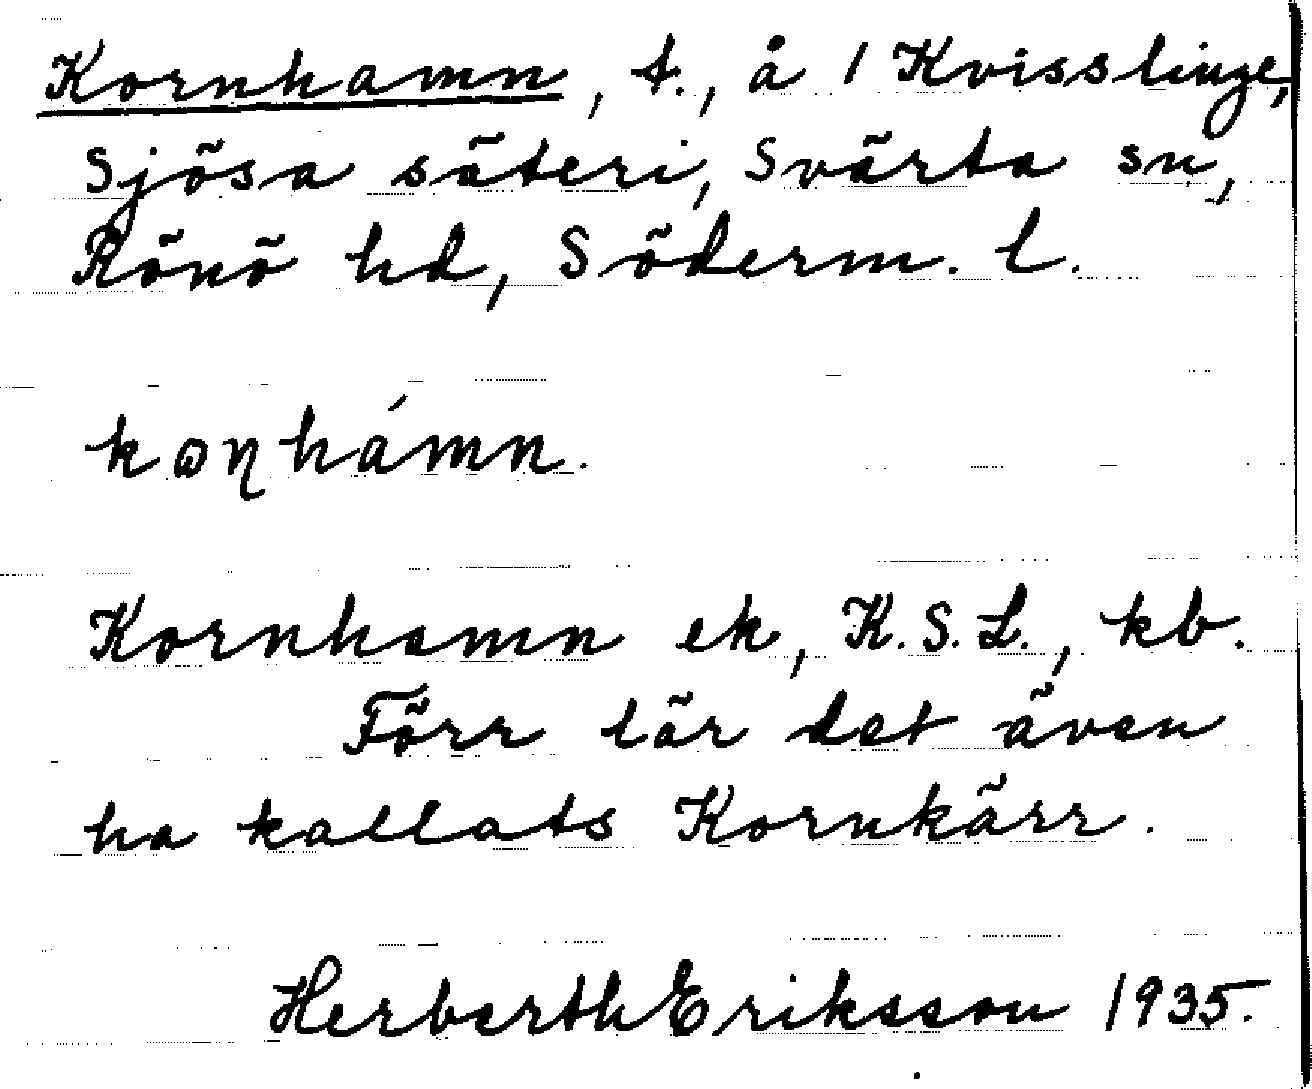 Kornhamn, t., å 1 Kvisslinge,
Sjösa säteri, Svärta sn,
Rönö hd, Söderm. l.
kɷɳhámn.
Kornhamn ek, K.S.L., kb.
Förr lär det även
ha kallats Kornkärr.
Herberth Eriksson 1935.